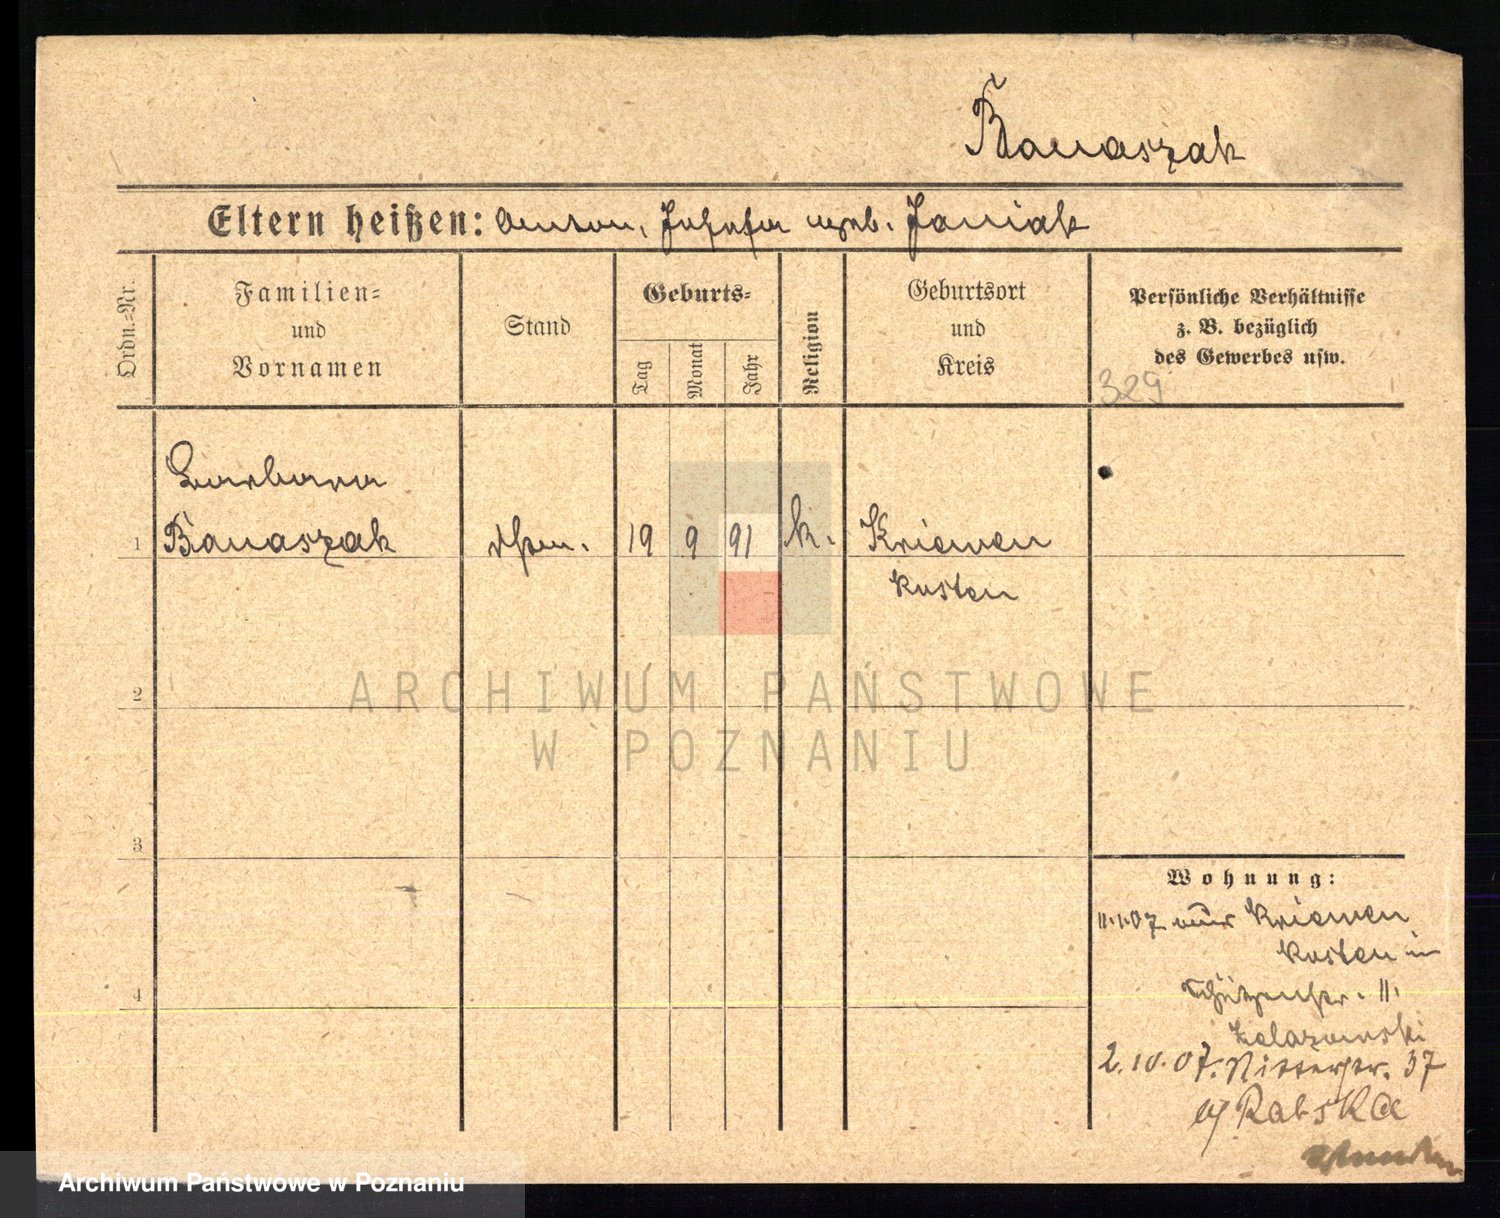 Banaszak
Eltern heißen: Anton, Josefa geb. Janiak
Ordn.-Nr.
Familien-
und
Vornamen
Stand
Geburts-
Tag
Monat
Jahr
Religion
Geburtsort
und
Kreis
Persönliche Verhältnisse
z. B. bezüglich
des Gewerbes usw.
329
Barbara
1 Banaszak 19 9 91 k. Kriewen
Kosten
2
ARCHIWUM PAŃSTWOWE
W POZNANIU
3
Wohnung:
11.1.07 aus Kriewen
Kosten in
4
Schützenstr. 11.
2.10.07. Ritterstr. 37
Rabska
Archiwum Państwowe w Poznaniu